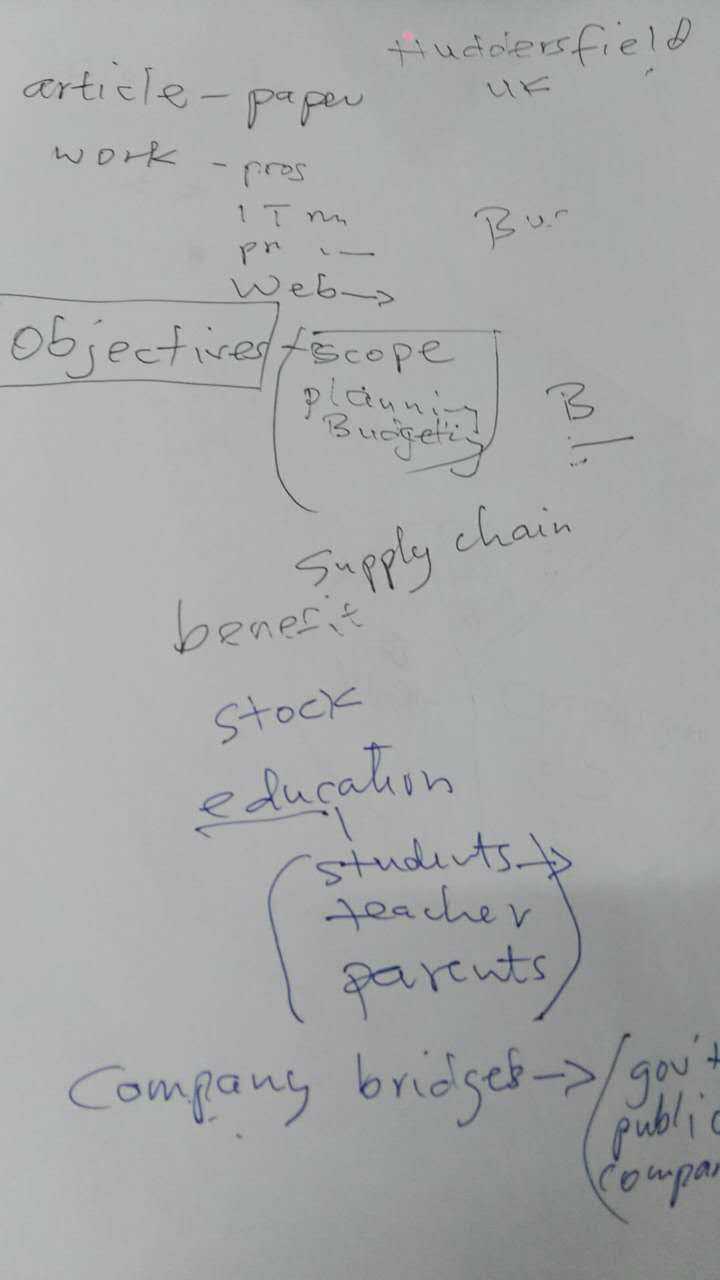 Huddersfield
UK
article - paper
work - pros
IT
Web →
Objectives
scope
planning
Budgeting
B
supply chain
benefit
stock
education
students →
teacher
parents
Company bridges → gov't
public
compan